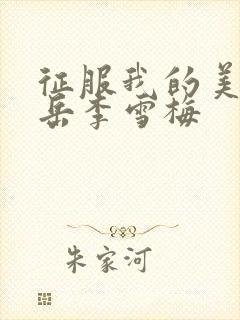 征服我的美
岳李雪梅
朱家河